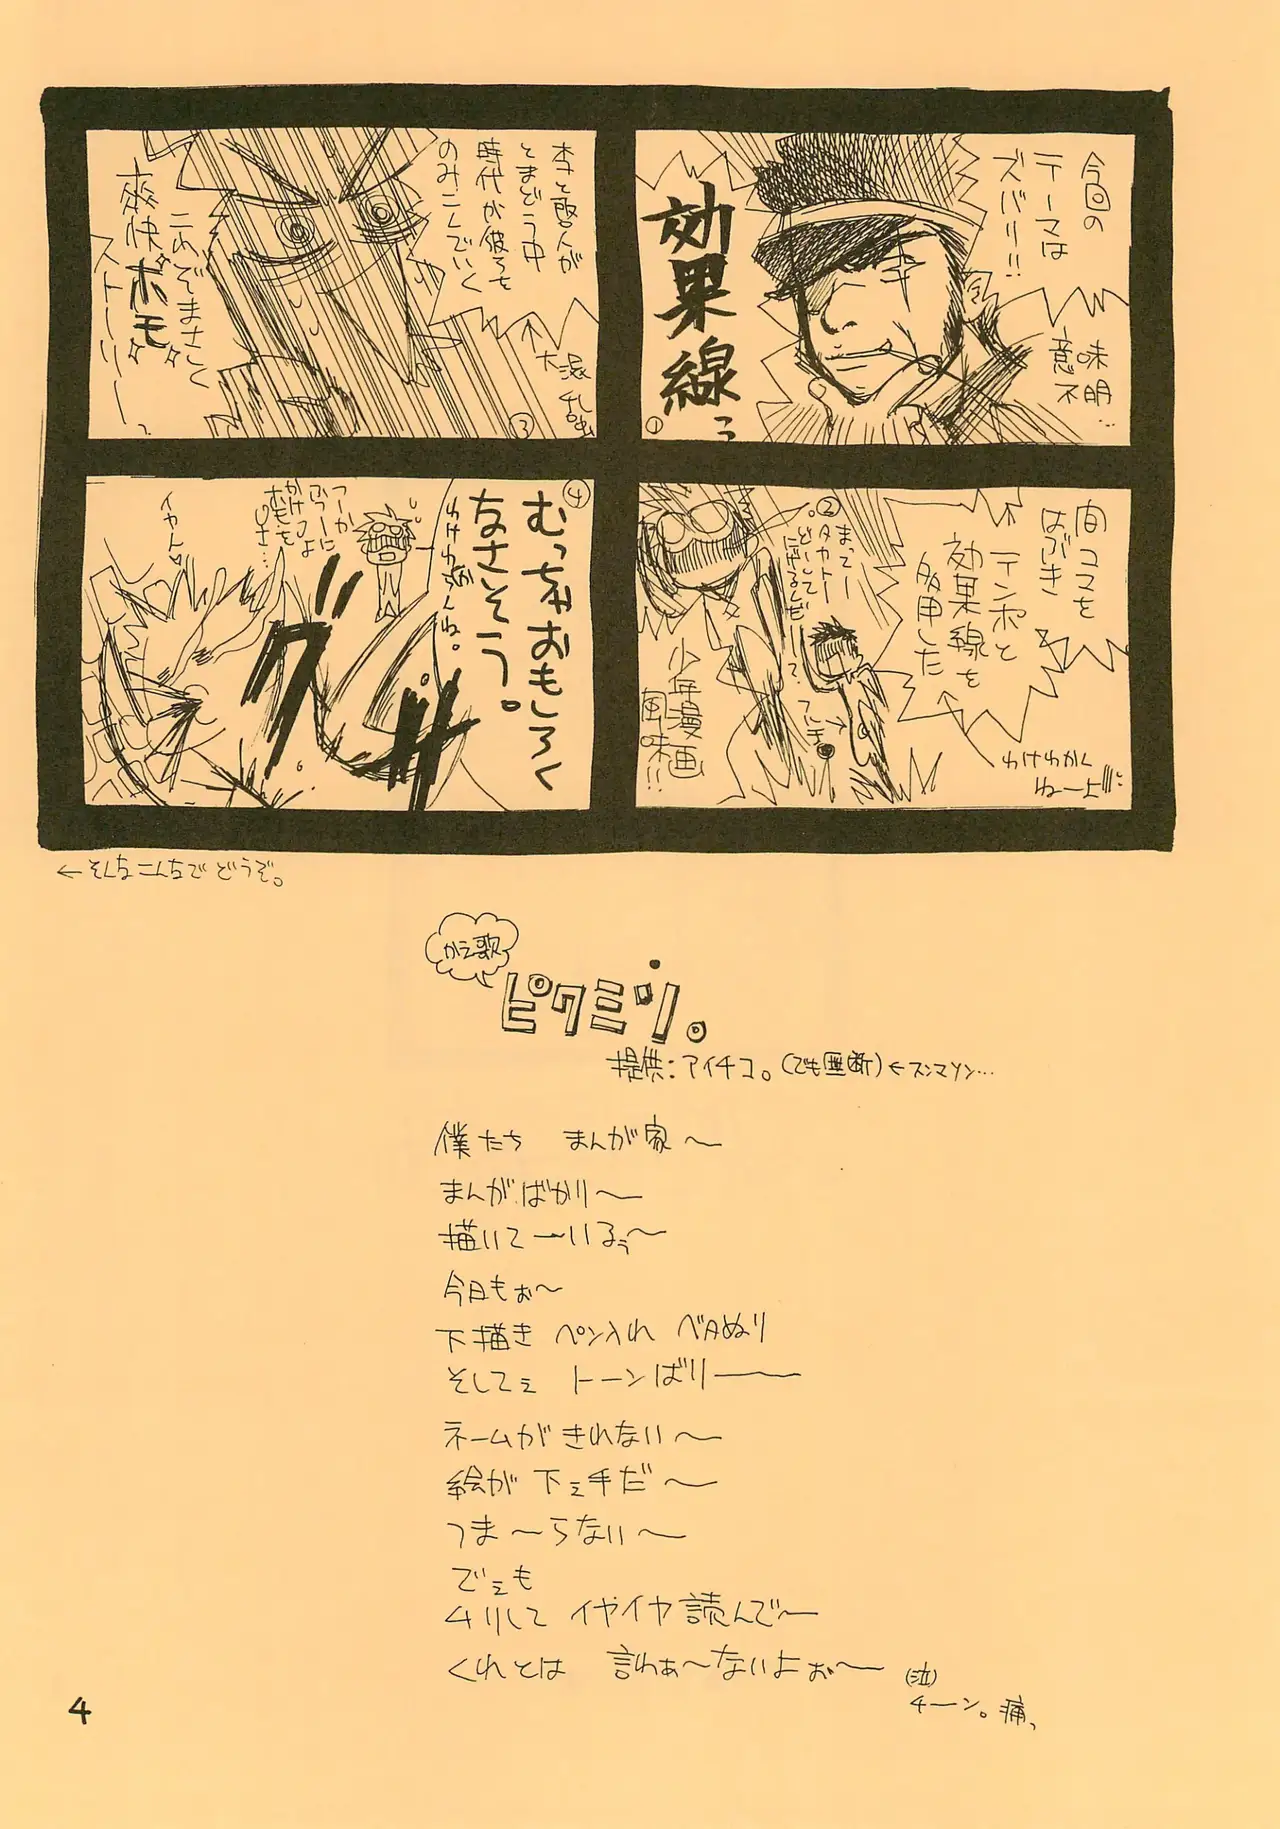 今回の
テーマは
ズバリ!!
効果線っ
意味
不明…
①
②
間コマを
はぶき
テンポと
効果線を
多用した
まってー
タカトー
どーして
にげるんだー
少年漫画
風味!!
わけわかく
ねーよ!!!
本と曽人が
とまどう中
時代が彼らを
のみこんでいく
大混乱
③
これぞまさしく
爽快ホモ
ストーリーーっ
④
むっちゃおもしろく
なさそう。
わけわかんね。
つーか
ふつーに
イヤん
グサ
←そんなこんなでどうぞ。
かえ歌
ピクミン。
提供:アイチコ。(でも無断)←スンマソン…
僕たち まんが家〜
まんがばかり〜
描いてーいるぅ〜
今日もぉ〜
下描き ペン入れ ベタぬり
そしてぇ トーンばりー
ネームがきれない〜
絵が 下ぇ手だ〜
つま〜らない〜
でぇも
ムリして イヤイヤ読んで〜
くれとは 言わぁ〜ないよぉ〜 (泣)
チーン。痛っ
4